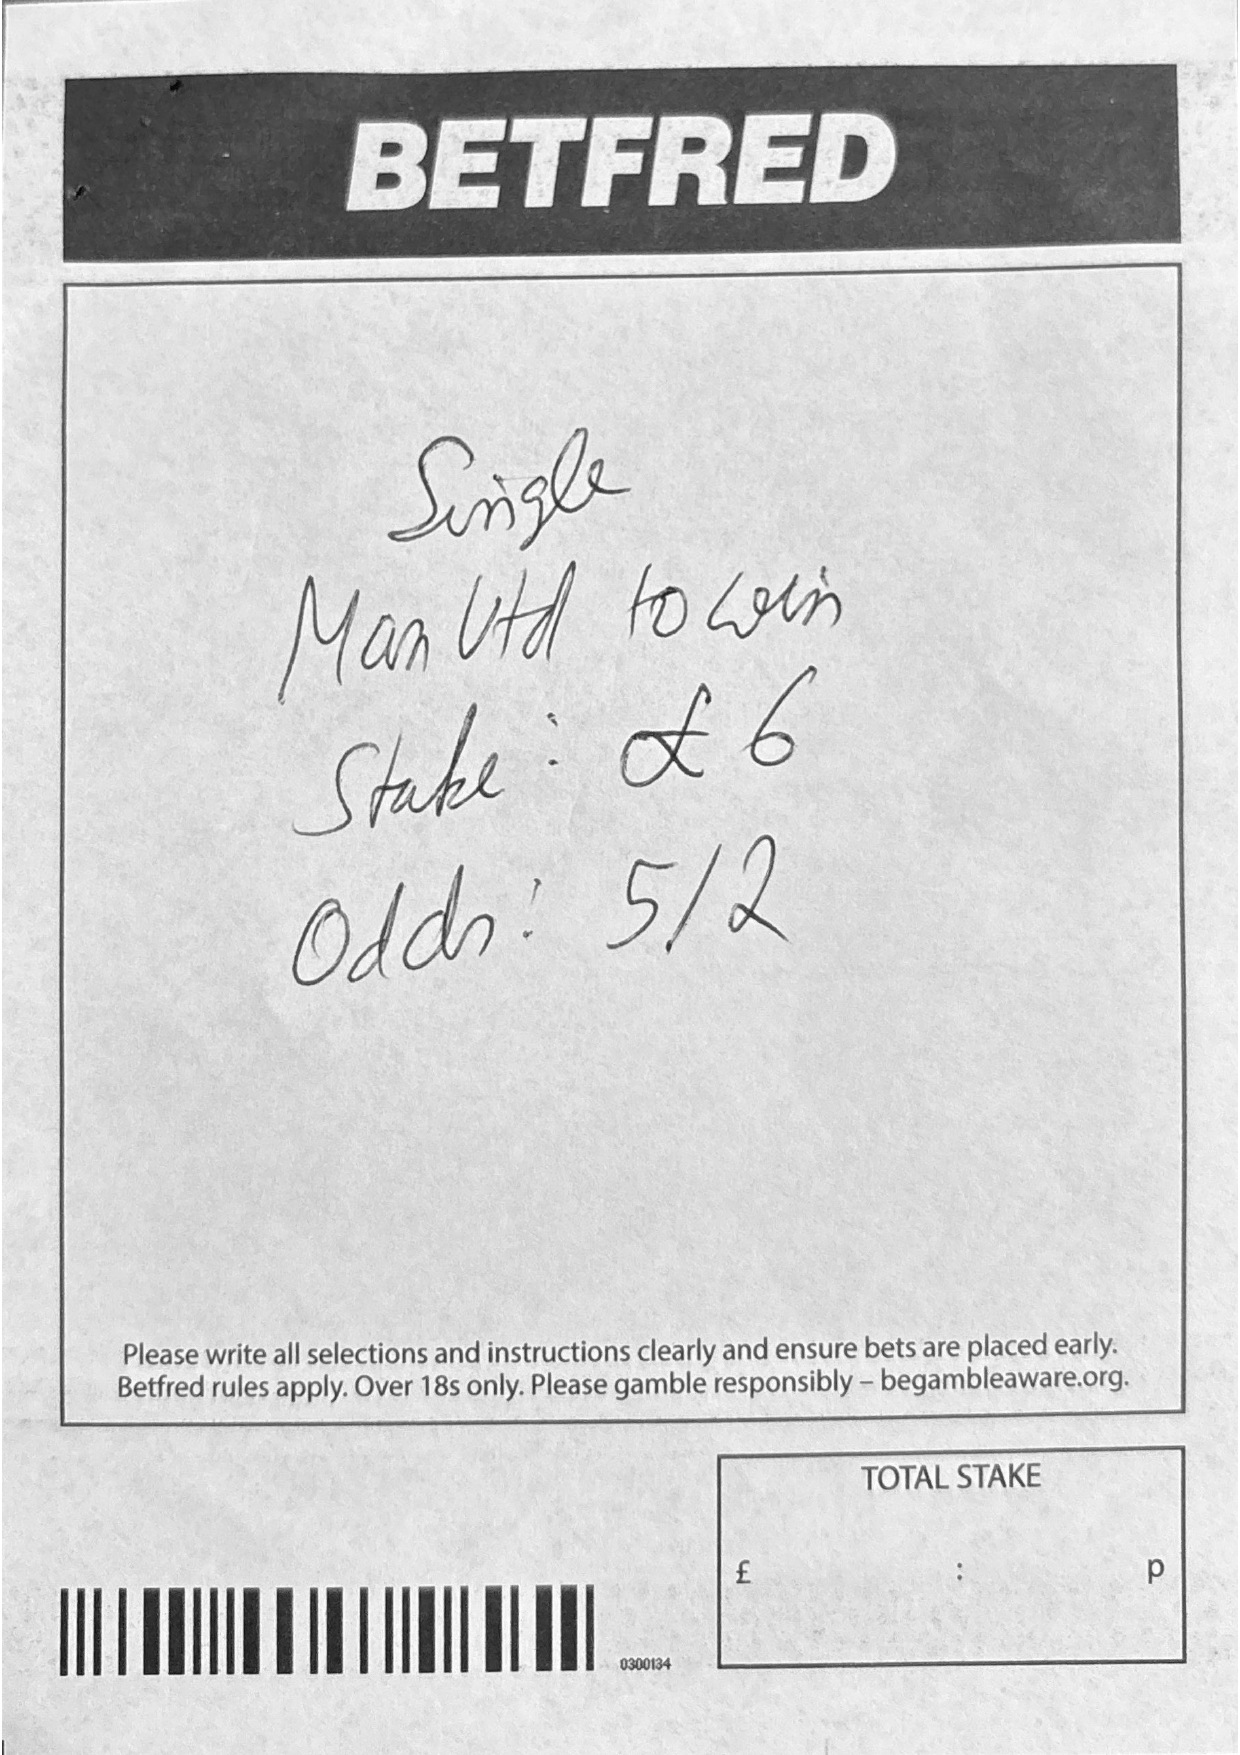 BETFRED
Single
Man Utd to win
Stake: £6
Odds: 5/2
Please write all selections and instructions clearly and ensure bets are placed early.
Betfred rules apply. Over 18s only. Please gamble responsibly – begambleaware.org.
TOTAL STAKE
£ : p
0300134